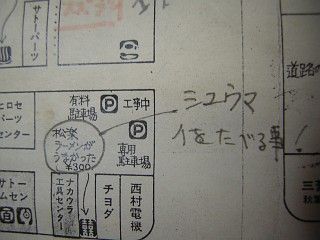 サトーパーツ
有料駐車場
P
工事中
ヒロセ
パーツ
センター
松楽
ラーメンが
うまかった
¥300
P
専用
駐車場
サトー
ムセン
ナカウラ
工具センター
チヨダ
西村電機
ミュウマ
イをたべる事!
道路の
三
秋葉